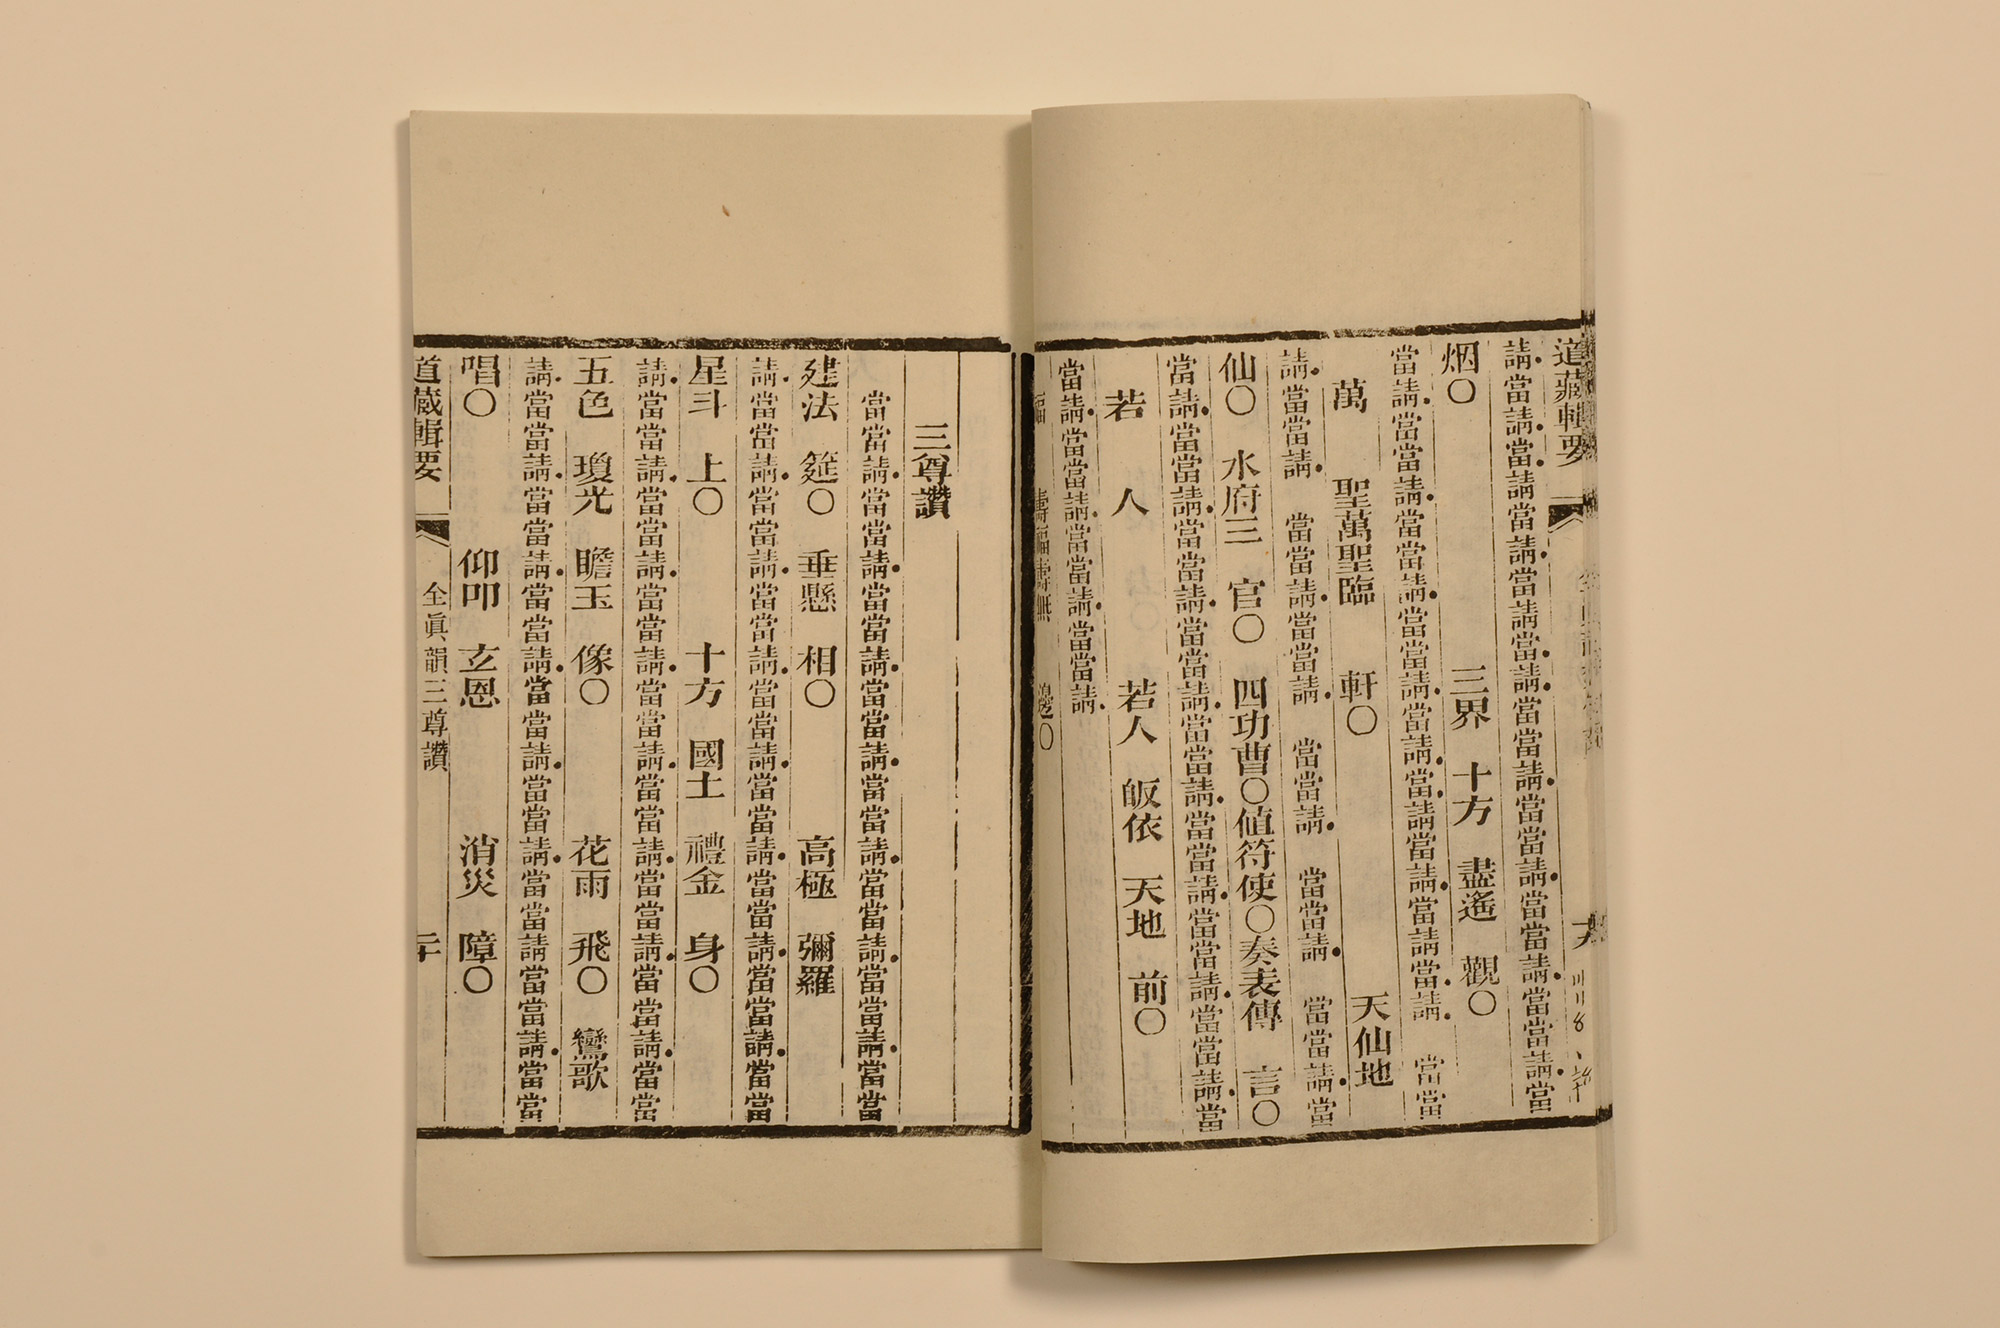 道藏輯要
請當請當請當請當請當請當當請當當請當當請當當請當
烟○ 三界 十方 盡遙 觀○
當請當當請當當請當當請當請當請當請當請當請 當當
萬 聖萬聖臨 軒○ 天仙地
請當當請 當當請當當請 當當請 當當請 當當請當
仙○ 水府三 官○ 四功曹○值符使○奏表傳 言○
當請當當請當當請當當請當當請當當請當當請當當請當
若 人 若人 皈依 天地 前○
當請當當請當當請當當請
福 壽福壽無 邊○
三尊讚
當當請當當請當當請當當請當當請當當請當當請當當
建法 筵○ 垂懸 相○ 高極 彌羅
請當當請當當請當當請當當請當當請當當請當當請當當
星斗 上○ 十方 國土 禮金 身○
請當當請當當請當當請當當請當當請當當請當當請當當
五色 瓊光 瞻玉 像○ 花雨 飛○ 鸞歌
請當當請當當請當當請當當請當當請當當請當當請當當
唱○ 仰叩 玄恩 消災 障○
道藏輯要 全眞韻三尊讚 二十